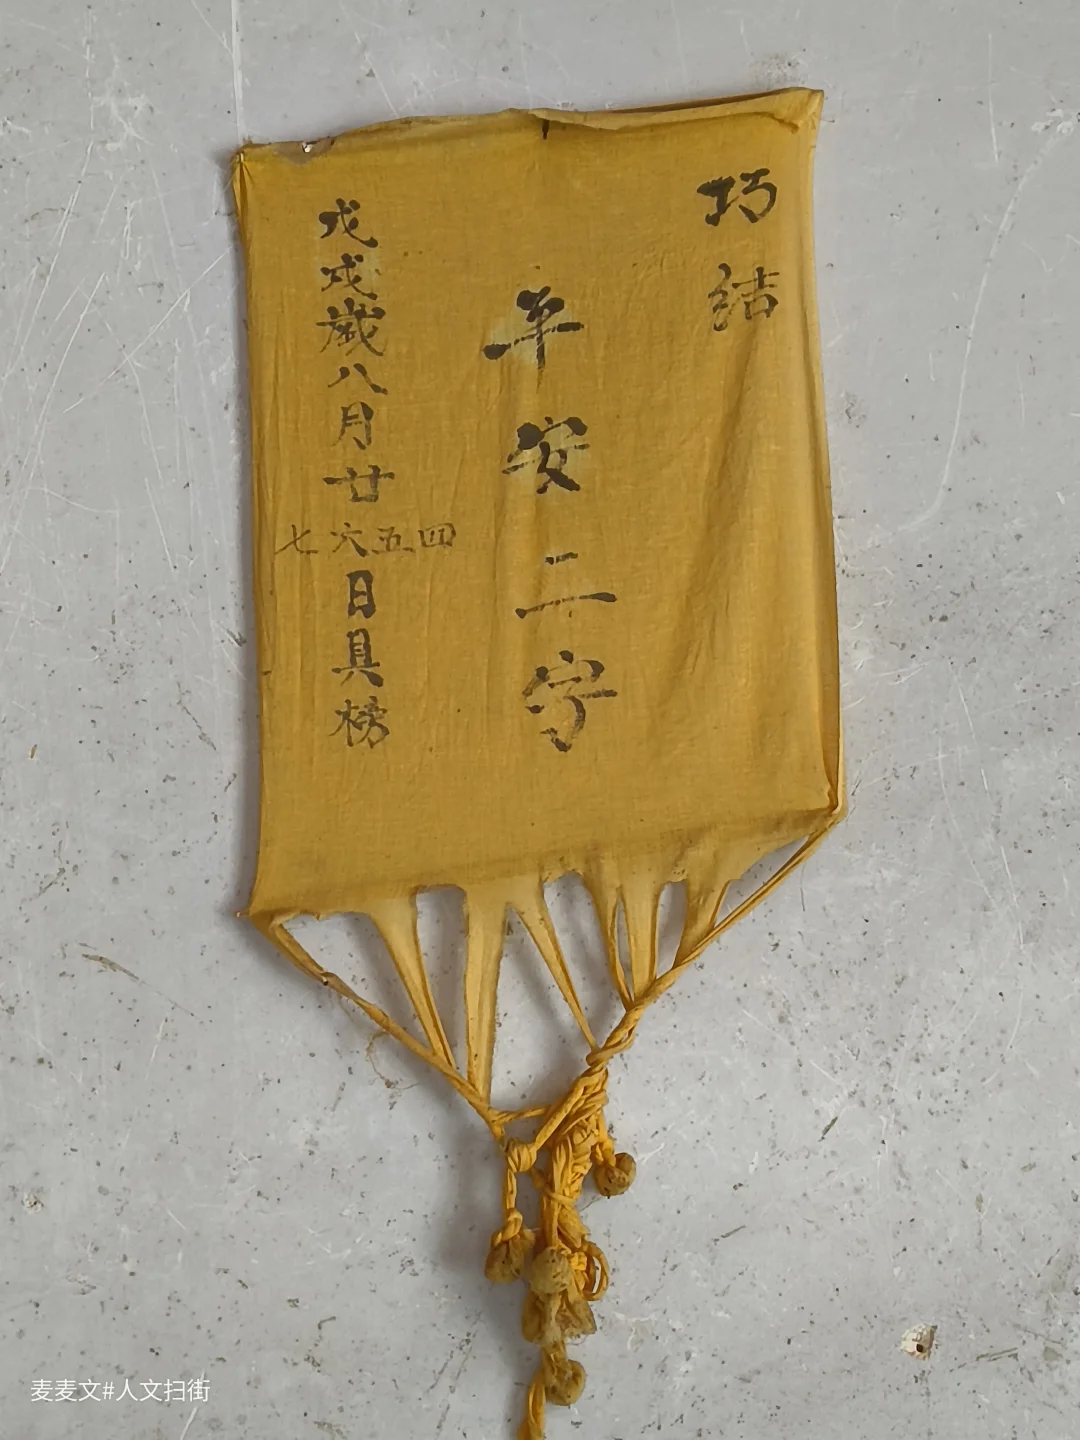 巧结
平安二字
戊戌歲八月廿四五六七日具榜
麦麦文#人文扫街